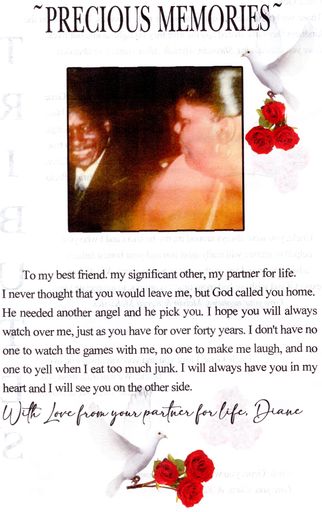 ~PRECIOUS MEMORIES~
To my best friend. my significant other, my partner for life.
I never thought that you would leave me, but God called you home.
He needed another angel and he pick you. I hope you will always
watch over me, just as you have for over forty years. I don't have no
one to watch the games with me, no one to make me laugh, and no
one to yell when I eat too much junk. I will always have you in my
heart and I will see you on the other side.
With Love from your partner for life, Diane